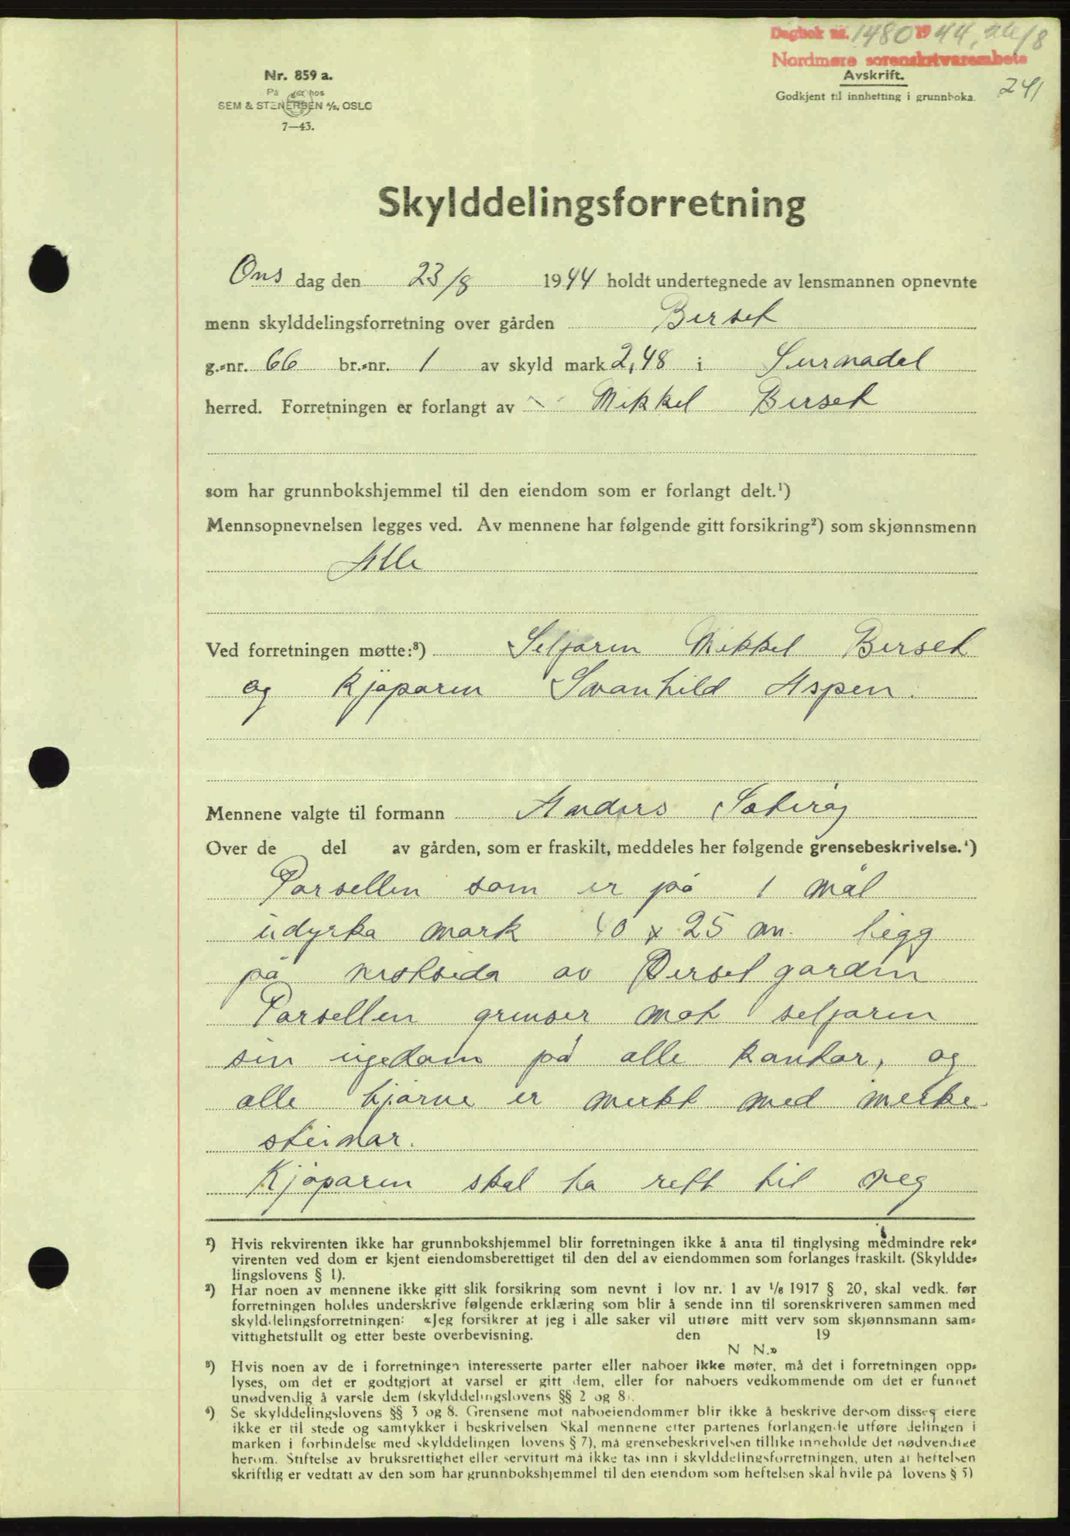 Dagbok nr. 1480 19 44, 26/8
Nordmøre sorenskriverembete
241
Nr. 859 a.
På hos
SEM & STENERSEN A/S, OSLO
7—43.
Avskrift.
Godkjent til innhefting i grunnboka.
Skylddelingsforretning
Ons dag den 23/8 1944 holdt undertegnede av lensmannen opnevnte
menn skylddelingsforretning over gården Berset
g.-nr. 66 br.-nr. 1 av skyld mark 2,48 i Surnadal
herred. Forretningen er forlangt av Mikkel Berset
som har grunnbokshjemmel til den eiendom som er forlangt delt.¹)
Mennsopnevnelsen legges ved. Av mennene har følgende gitt forsikring²) som skjønnsmenn
Alle
Ved forretningen møtte:³) Seljaren Mikkel Berset
og Kjøparen Svanhild Aspen.
Mennene valgte til formann Anders Sæterøy
Over de del av gården, som er fraskilt, meddeles her følgende grensebeskrivelse.⁴)
Parsellen som er på 1 mål
udyrka mark 40 x 25 m. ligg
på av Berset garden
Parsellen grenser mot seljaren
sin eigedom på alle kantar, og
alle hjørne er merkt med merke-
steinar.
Kjøparen skal ha rett til veg
¹) Hvis rekvirenten ikke har grunnbokshjemmel blir forretningen ikke å anta til tinglysing medmindre rek-
virenten ved dom er kjent eiendomsberettiget til den del av eiendommen som forlanges fraskilt. (Skyldde-
lingslovens § 1).
²) Har noen av mennene ikke gitt slik forsikring som nevnt i lov nr. 1 av 1/6 1917 § 20, skal vedk. før
forretningen holdes underskrive følgende erklæring som blir å sende inn til sorenskriveren sammen med
skylddelingsforretningen: «Jeg forsikrer at jeg i alle saker vil utføre mitt verv som skjønnsmann sam-
vittighetsfullt og etter beste overbevisning. den 19
N N.»
³) Hvis noen av de i forretningen interesserte parter eller naboer ikke møter, må det i forretningen opp-
lyses, om det er godtgjort at varsel er gitt dem, eller for naboers vedkommende om det er funnet
unødvendig å varsle dem (skylddelingslovens §§ 2 og 8).
⁴) Se skylddelingslovens §§ 3 og 8. Grensene mot naboeiendommer blir ikke å beskrive dersom disses eiere
ikke er til stede og samtykker i beskrivelsen Skal mennene etter partenes forlangende utføre delingen i
marken i forbindelse med skylddelingen lovens § 7), må grensebeskrivelsen tillike inneholde det nødvendige
herom. Stiftelse av bruksrettighet eller servitutt må ikke tas inn i skylddelingsforretningen, uten at heftelsen
skriftlig er vedtatt av den som har grunnbokshjemmel til den eiendom som heftelsen skal hvile på lovens § 5)